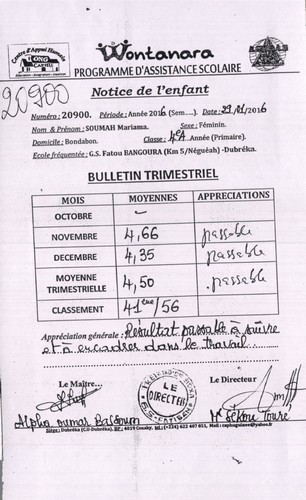 Centre d'Appui Humain
LONG
CASTEL
Wontanara
PROGRAMME D'ASSISTANCE SCOLAIRE
20900
Notice de l'enfant
Numéro : 20900. Période : Année 2016 (Sem.....). Date : 29/01/2016
Nom & Prénom : SOUMAH Mariama. Sexe : Féminin.
Domicile : Bondabon. Classe : 4e A Année (Primaire).
Ecole fréquentée : G.S. Fatou BANGOURA (Km 5/Néguéah) - Dubréka.
BULLETIN TRIMESTRIEL
MOIS MOYENNES APPRECIATIONS
OCTOBRE –
NOVEMBRE 4,66 passable
DECEMBRE 4,35 passable
MOYENNE TRIMESTRIELLE 4,50 passable
CLASSEMENT 41ème/56
Appréciation générale : Résultat passable à suivre
et à encadrer dans le travail...
Le Maître... Le Directeur
LE
DIRECTEUR
Alpha oumar Mr Sékou Touré
Siège : Dubréka (C.U-Dubréka), BP.: 4019 Conakry,